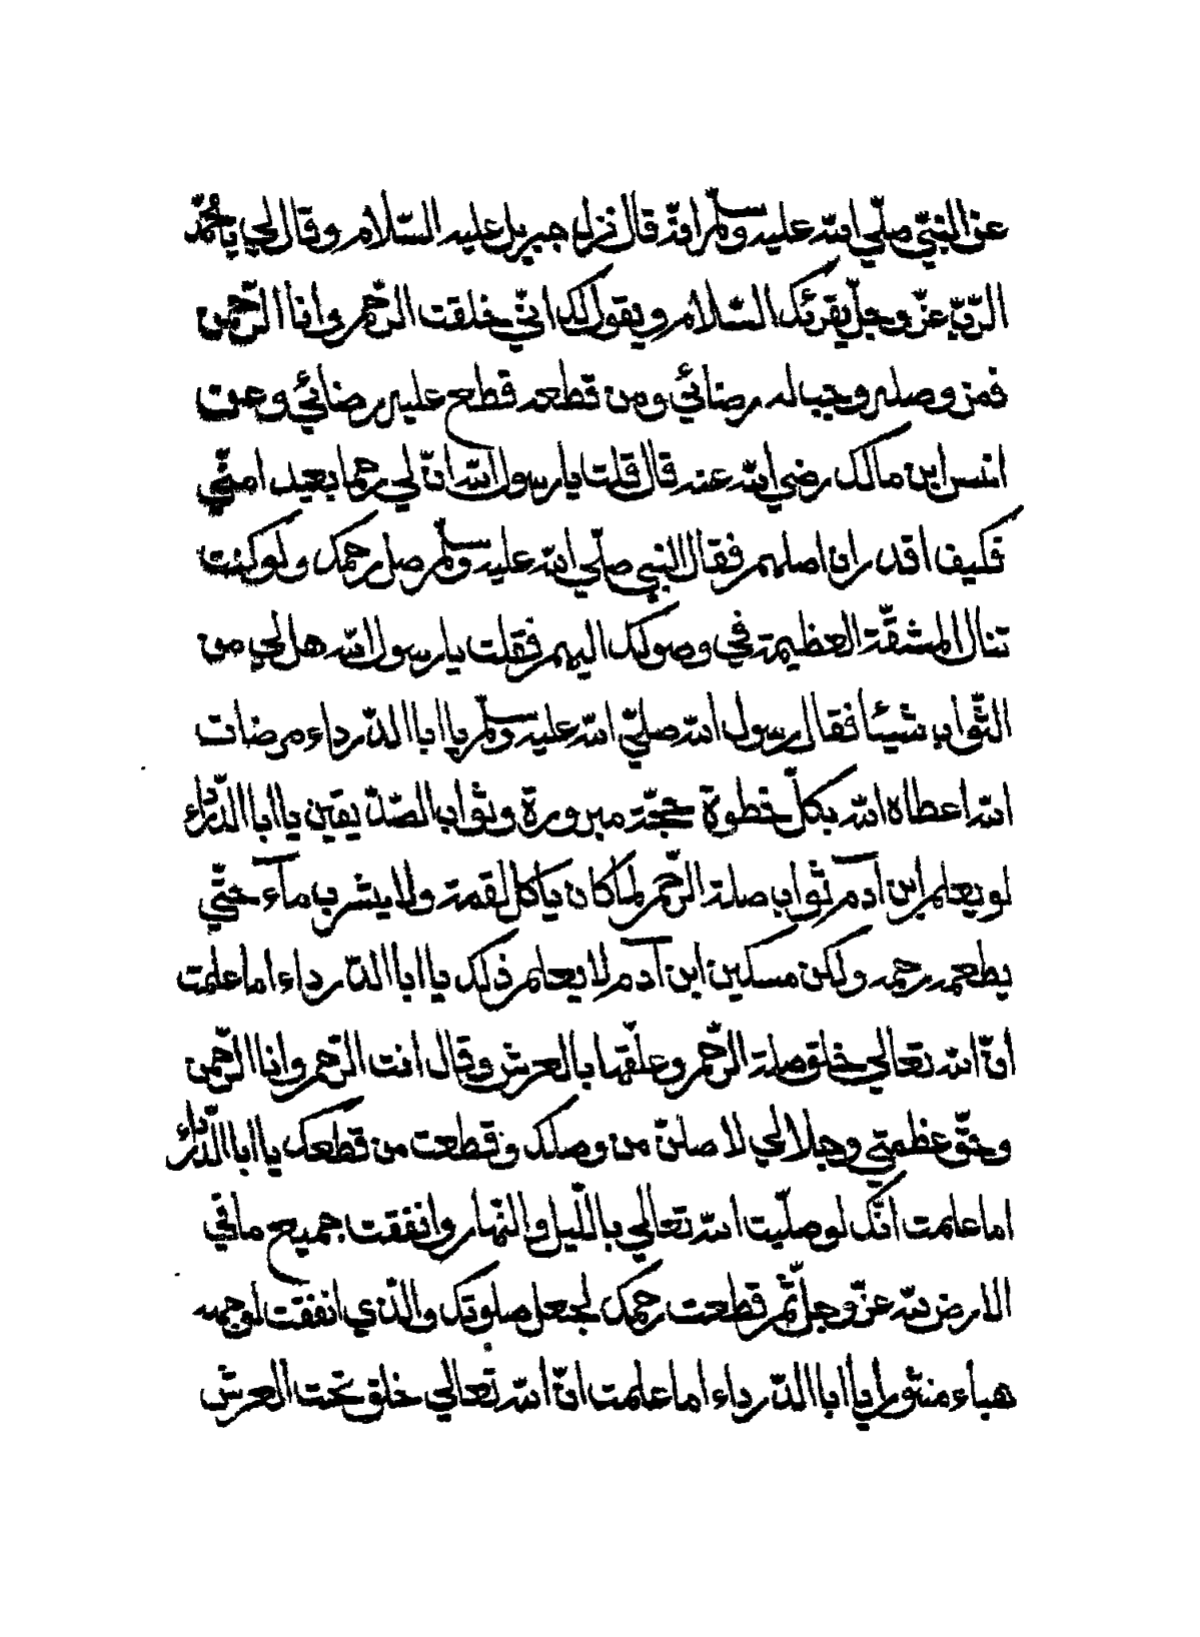 عن النبيّ صلّي الله عليه وسلّم انّه قال نزل جبريل عليه السّلام وقال لي يا محمّد
الربّ عزّ وجلّ يقرئك السّلام ويقول لك انّي خلقت الرّحم وانا الرّحمن
فمن وصله وجب له رضائي ومن قطعه قطع عليه رضائي وعن
انس ابن مالك رضي الله عنه قال قلت يا رسول الله انّ لي رحما بعيد امنّي
فكيف اقدر ان اصلهم فقال النبي صلّي الله عليه وسلّم صل رحمك ولو كنت
تنال المشقّة العظيمة في وصولك اليهم فقلت يا رسول الله هل لي من
الثّواب شيئا فقال رسول الله صليّ الله عليه وسلّم يا ابا الدّرداء مرضات
الله اعطاه الله بكلّ خطوة حجّة مبرورة وثواب الصّدّيقين يا ابا الدّرداء
لو يعلم ابن آدم ثواب صلة الرّحم لما كان يأكل لقمة ولا يشرب مآء حتّي
يطعمه رحمه ولكن مسكين ابن آدم لا يعلم ذلك يا ابا الدّرداء اما علمت
انّ الله تعالي خلق صلة الرّحم وعلّقها بالعرش وقال انت الرّحم وانا الرّحمن
وحقّ عظمتي وجلالي لا صلنّ من وصلك وقطعت من قطعك يا ابا الدّرداء
اما علمت انّك لو صلّيت الله تعالي بالّليل والنّهار وانفقت جميع ما في
الارض لله عزّ وجلّ ثمّ قطعت رحمك لجعل صلوتك والّذي انفقت لوجهه
هباء منثورا يا ابا الدّرداء اما علمت انّ الله تعالي خلق تحت العرش